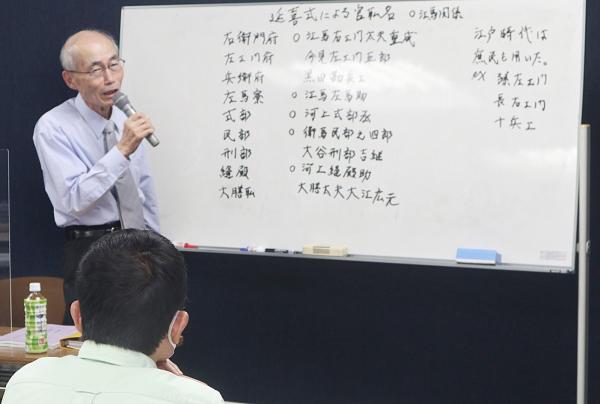 延喜式による官職名 ○江馬関係
右衛門府 ○江馬右エ門大夫重成
左エ門府 今見左エ門五郎
兵衛府
左馬寮 ○江馬左馬助
式部 ○河上式部丞
民部 ○衛馬民部
刑部 大谷刑部吉継
縫殿 ○河上縫殿助
大膳職 大膳大夫大江広元
江戸時代は
庶民も用いた。
ex 孫左エ門
長右エ門
十兵エ